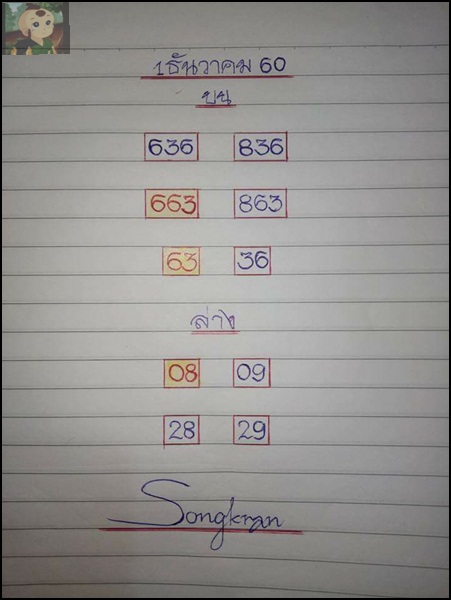 1 ธันวาคม 60
บน
636 836
663 863
63 36
ล่าง
08 09
28 29
Songkran